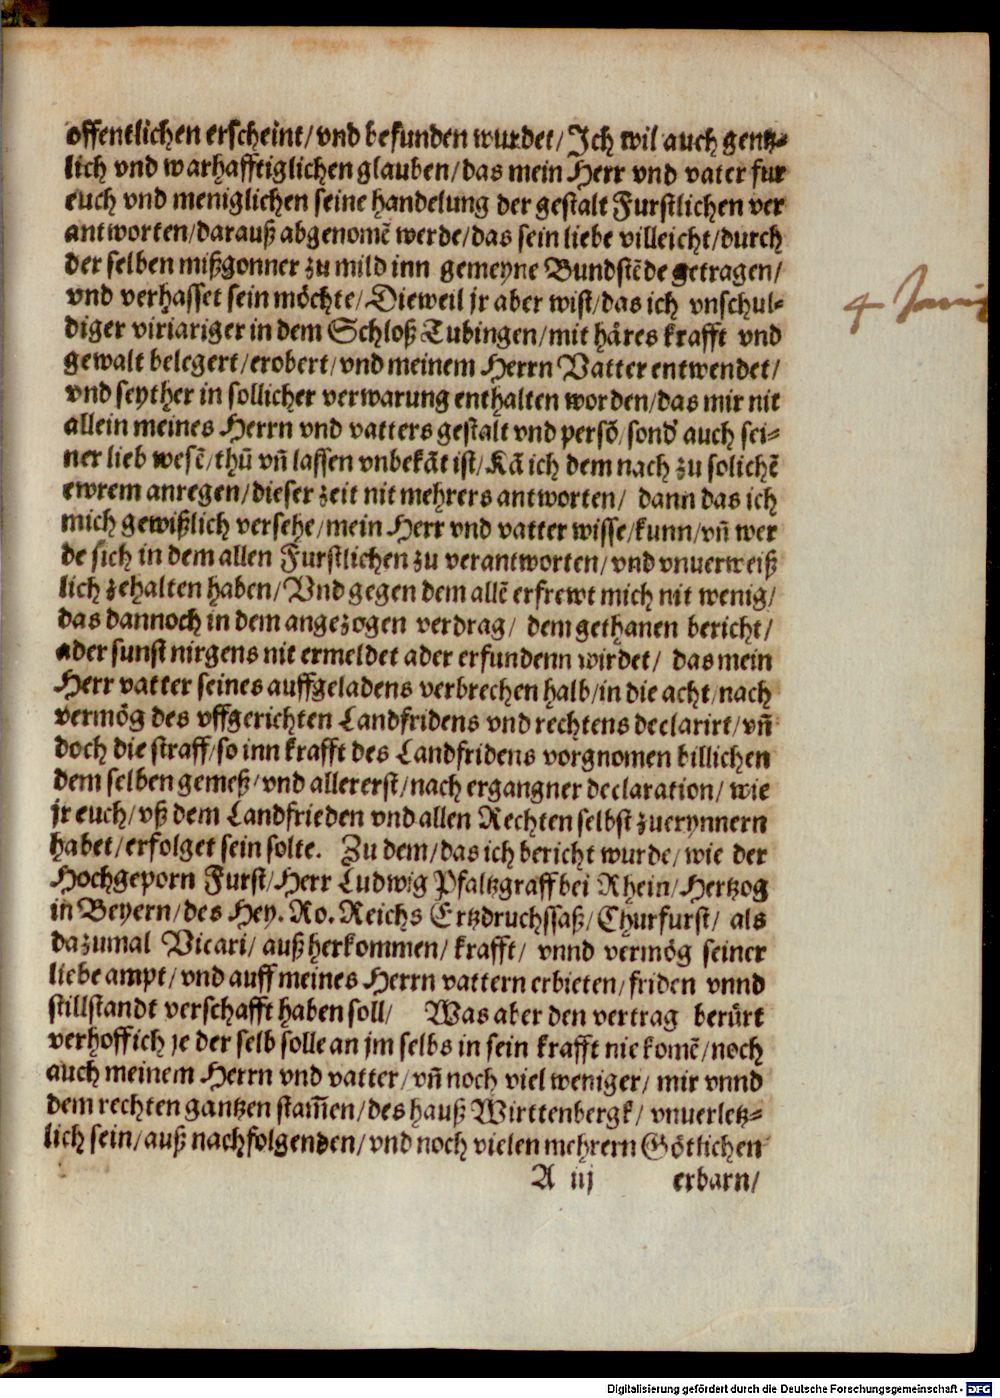 offentlichen erscheint/ vnd befunden wurdet/ Jch wil auch gentz-
lich vnd warhafftiglichen glauben/ das mein Herr vnd vater fur
euch vnd meniglichen seine handelung der gestalt Furstlichen ver
antworten/ darauß abgenomē werde/ das sein liebe villeicht/ durch
der selben mißgonner zu mild inn gemeyne Bundstēde getragen/
vnd verhasset sein möchte/ Dieweil jr aber wist/ das ich vnschul-
diger virjariger in dem Schloß Tubingen/ mit häres krafft vnd
gewalt belegert/ erobert/ vnd meinem Herrn Vatter entwendet/
vnd seyther in sollicher verwarung enthalten worden/ das mir nit
allein meines Herrn vnd vatters gestalt vnd persō/ sond' auch sei-
ner lieb wesē/ thū vn̄ lassen vnbekāt ist/ Kā ich dem nach zu solichē
ewrem anregen/ dieser zeit nit mehrers antworten/ dann das ich
mich gewißlich versehe/ mein Herr vnd vatter wisse/ kunn/ vn̄ wer
de sich in dem allen Furstlichen zu verantworten/ vnd vnuerweiß
lich zehalten haben/ Vnd gegen dem allē erfrewt mich nit wenig/
das dannoch in dem angezogen verdrag/ dem gethanen bericht/
ader sunst nirgens nit ermeldet ader erfundenn wirdet/ das mein
Herr vatter seines auffgeladens verbrechen halb/ in die acht/ nach
vermög des vffgerichten Landfridens vnd rechtens declarirt/ vn̄
doch die straff/ so inn krafft des Landfridens vorgnomen billichen
dem selben gemeß/ vnd allererst/ nach ergangner declaration/ wie
jr euch/ vß dem Landfrieden vnd allen Rechten selbst zuerynnern
habet/ erfolget sein solte. Zu dem/ das ich bericht wurde/ wie der
Hochgeporn Furst/ Herr Ludwig Pfaltzgraff bei Rhein/ Hertzog
in Beyern/ des Hey. Ro. Reichs Ertzdruchssaß/ Churfurst/ als
dazumal Vicari/ auß herkommen/ krafft/ vnnd vermög seiner
liebe ampt/ vnd auff meines Herrn vattern erbieten/ friden vnnd
stillstandt verschafft haben soll/ Was aber den vertrag berürt
verhoff ich je der selb solle an jm selbs in sein krafft nie komē/ noch
auch meinem Herrn vnd vatter/ vn̄ noch viel weniger/ mir vnnd
dem rechten gantzen stam̄en/ des hauß Wirttenbergk/ vnuerletz-
lich sein/ auß nachfolgenden/ vnd noch vielen mehrern Götlichen
A iij erbarn/
4
Digitalisierung gefördert durch die Deutsche Forschungsgemeinschaft - DFG